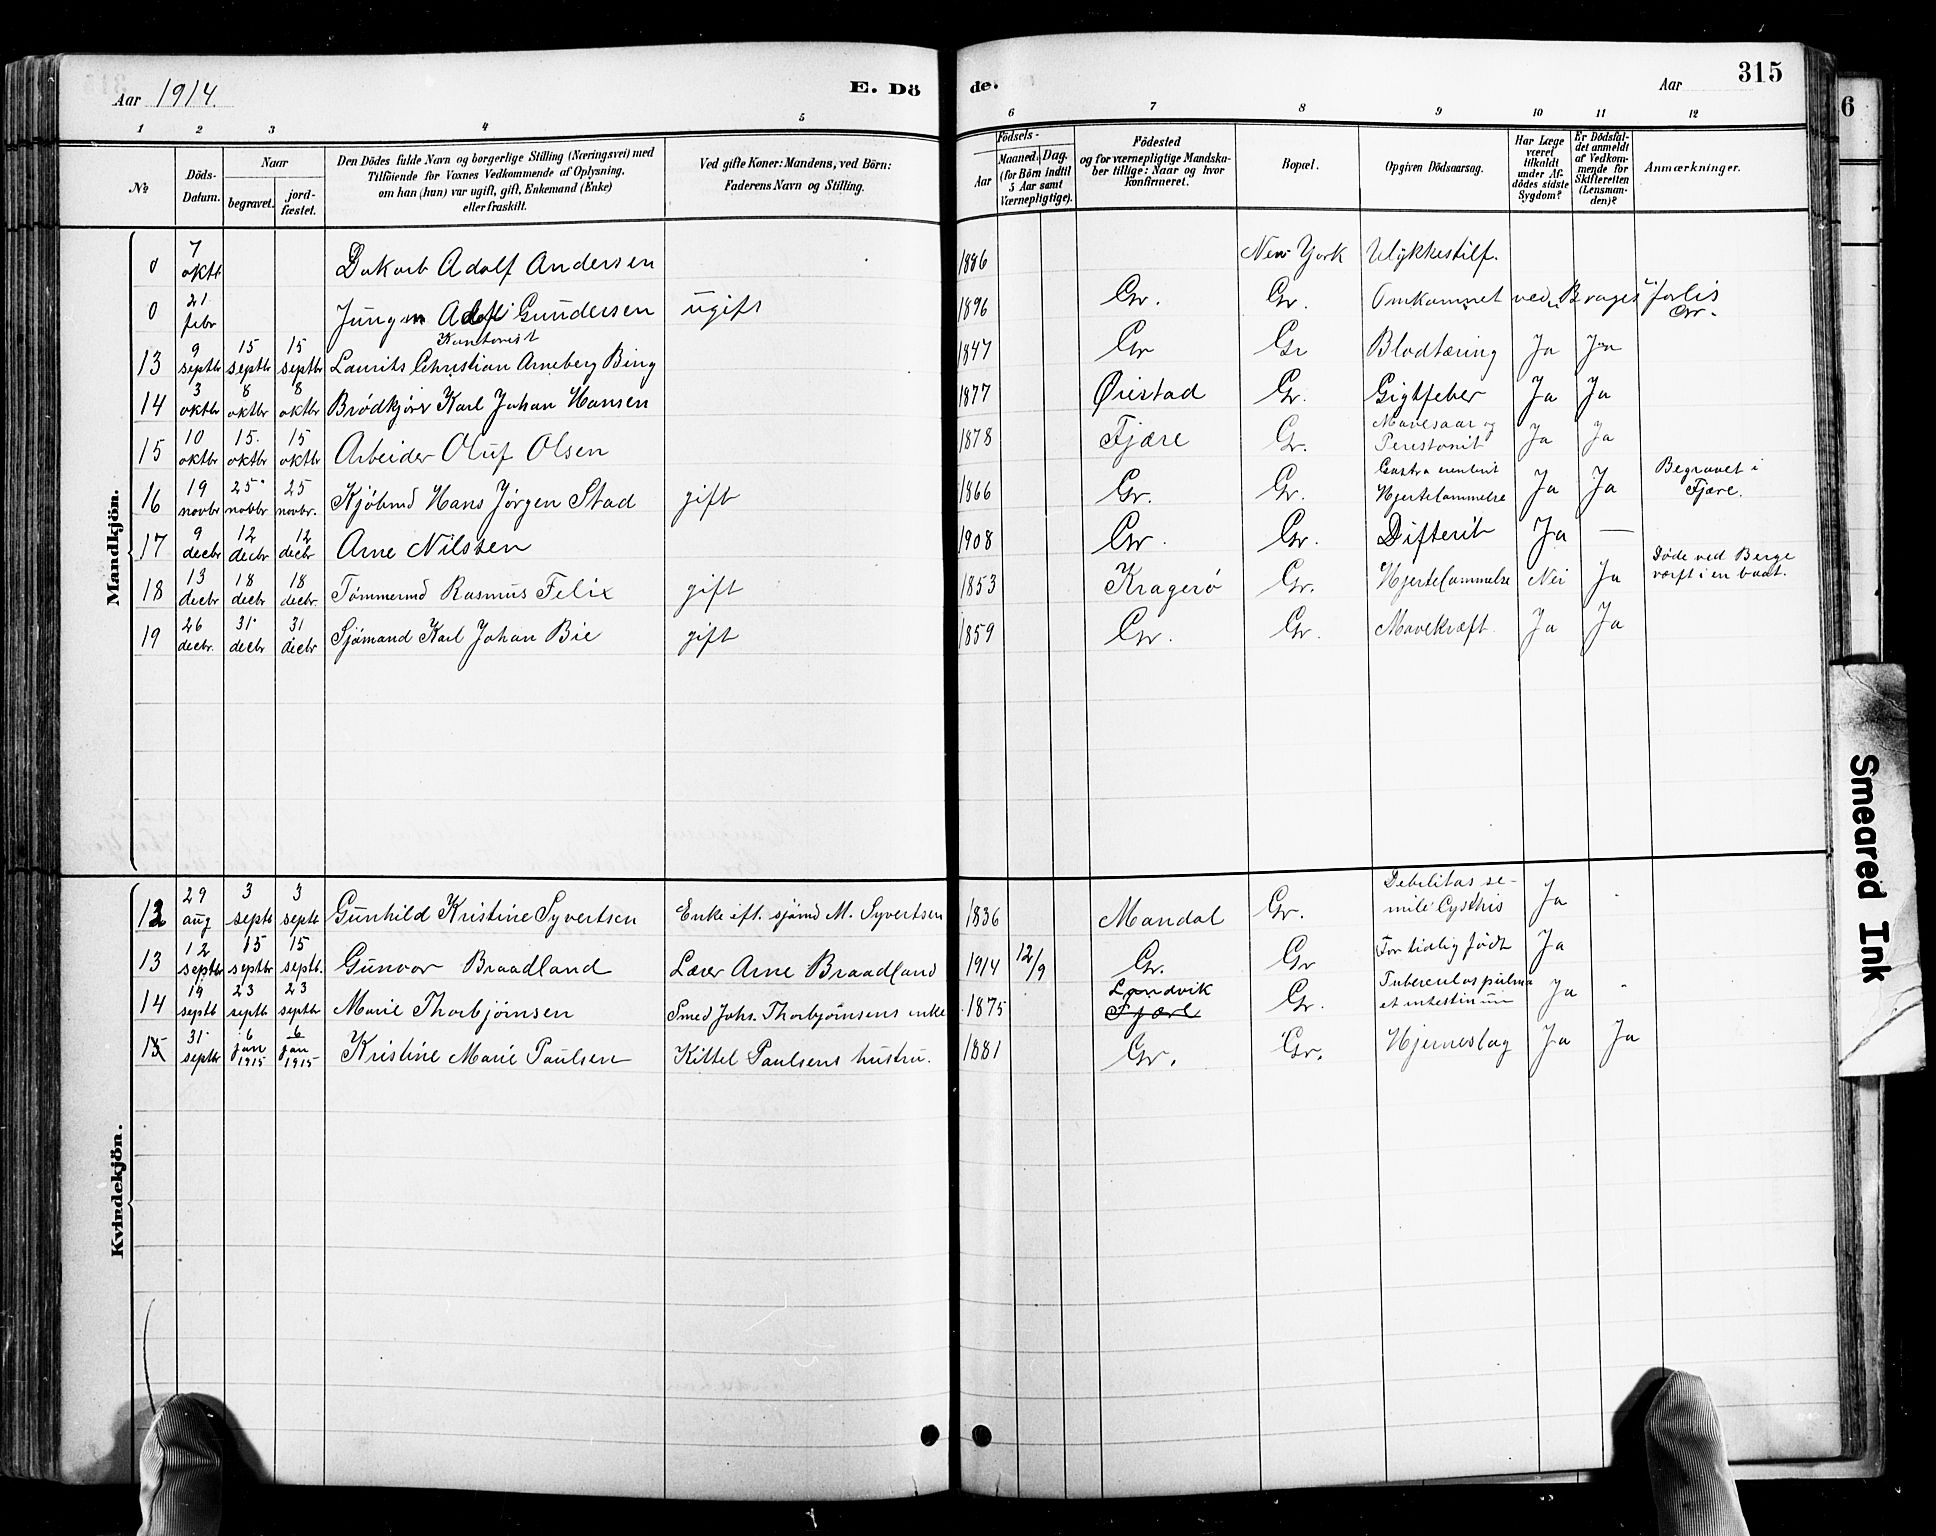 Aar 1914.
E. Dö
de.
Aar
315
6
1 2 3 4 5 6 7 8 9 10 11 12
No
Döds-Datum.
Naar
begravet.
jord-fæstet.
Den Dödes fulde Navn og borgerlige Stilling (Næringsvei) med
Tilföiende for Voxnes Vedkommende af Oplysning,
om han (hun) var ugift, gift, Enkemand (Enke)
eller fraskilt.
Ved gifte Koner: Mandens, ved Börn:
Faderens Navn og Stilling.
Födsels-
Aar
Maaned. Dag.
(for Börn indtil
5 Aar samt
Værnepligtige).
Födested
og for værnepligtige Mandska-
ber tillige: Naar og hvor
konfirmeret.
Bopæl.
Opgiven Dödsaarsag.
Har Læge
været
tilkaldt
under Af-
dödes sidste
Sygdom?
Er Dödsfal-
det anmeldt
af Vedkom-
mende for
Skifteretten
(Lensman-
den)?
Anmærkninger.
Mandkjön.
0 7 oktb Adolf Andersen 1886 New York Ulykkestilf.
0 21 febr Jungm Adolf Gundersen ugift 1896 Gr. Gr. Omkommet ved "Brages" forlis
Gr.
Kontorist
13 9 septbr 15 septbr 15 septbr Laurits Christian Arneberg Bing 1847 Gr Gr Blodtæring Ja Ja
14 3 oktbr 8 oktbr 8 oktbr Brödkjörer Karl Johan Hansen 1877 Öiestad Gr. Gigtfeber Ja Ja
15 10 oktbr 15. oktbr 15 oktbr Arbeider Oluf Olsen 1878 Fjære Gr. Mavesaar og
Peristonit Ja Ja
16 19 novbr 25 novbr 25 novbr. Kjöbmd Hans Jörgen Stad gift 1866 Gr. Gr. Hjertelammelse Ja Ja Begravet i
Fjære.
17 9 decbr 12 decbr 12 decbr Arne Nilsen 1908 Gr. Gr. Difterit Ja —
18 13 decbr 18 decbr 18 decbr. Tömmermd Rasmus Felix gift 1853 Kragerö Gr. Hjertelammelse Nei Ja Döde ved Berge
værft i en baat.
19 26 decbr. 31 decbr 31 decbr Sjömand Karl Johan Bie gift 1859 Gr. Gr. Mavekræft Ja Ja
Kvindekjön.
12 29 aug 3 septb 3 septb Gunhild Kristine Syvertsen Enke eft. sjömd M. Syvertsen 1836 Mandal Gr. Debilitas se-
nile Ja
13 12 septbr 15 septbr 15 septb. Gunvor Braadland Lærer Arne Braadland 1914 12/9 Gr. Gr For tidlig födt Ja
14 19 septb 23 septb 23 septbr Marie Thorbjörnsen Smed Johs. Thorbjörnsens enke 1875 Landvik
Fjære Gr. Tuberculos pulmo
et intestinum Ja
15 31 septbr 6 jan 1915 6 jan 1915 Kristine Marie Paulsen Kittel Paulsens hustru. 1881 Gr. Gr. Hjerneslag Ja Ja
Smeared Ink